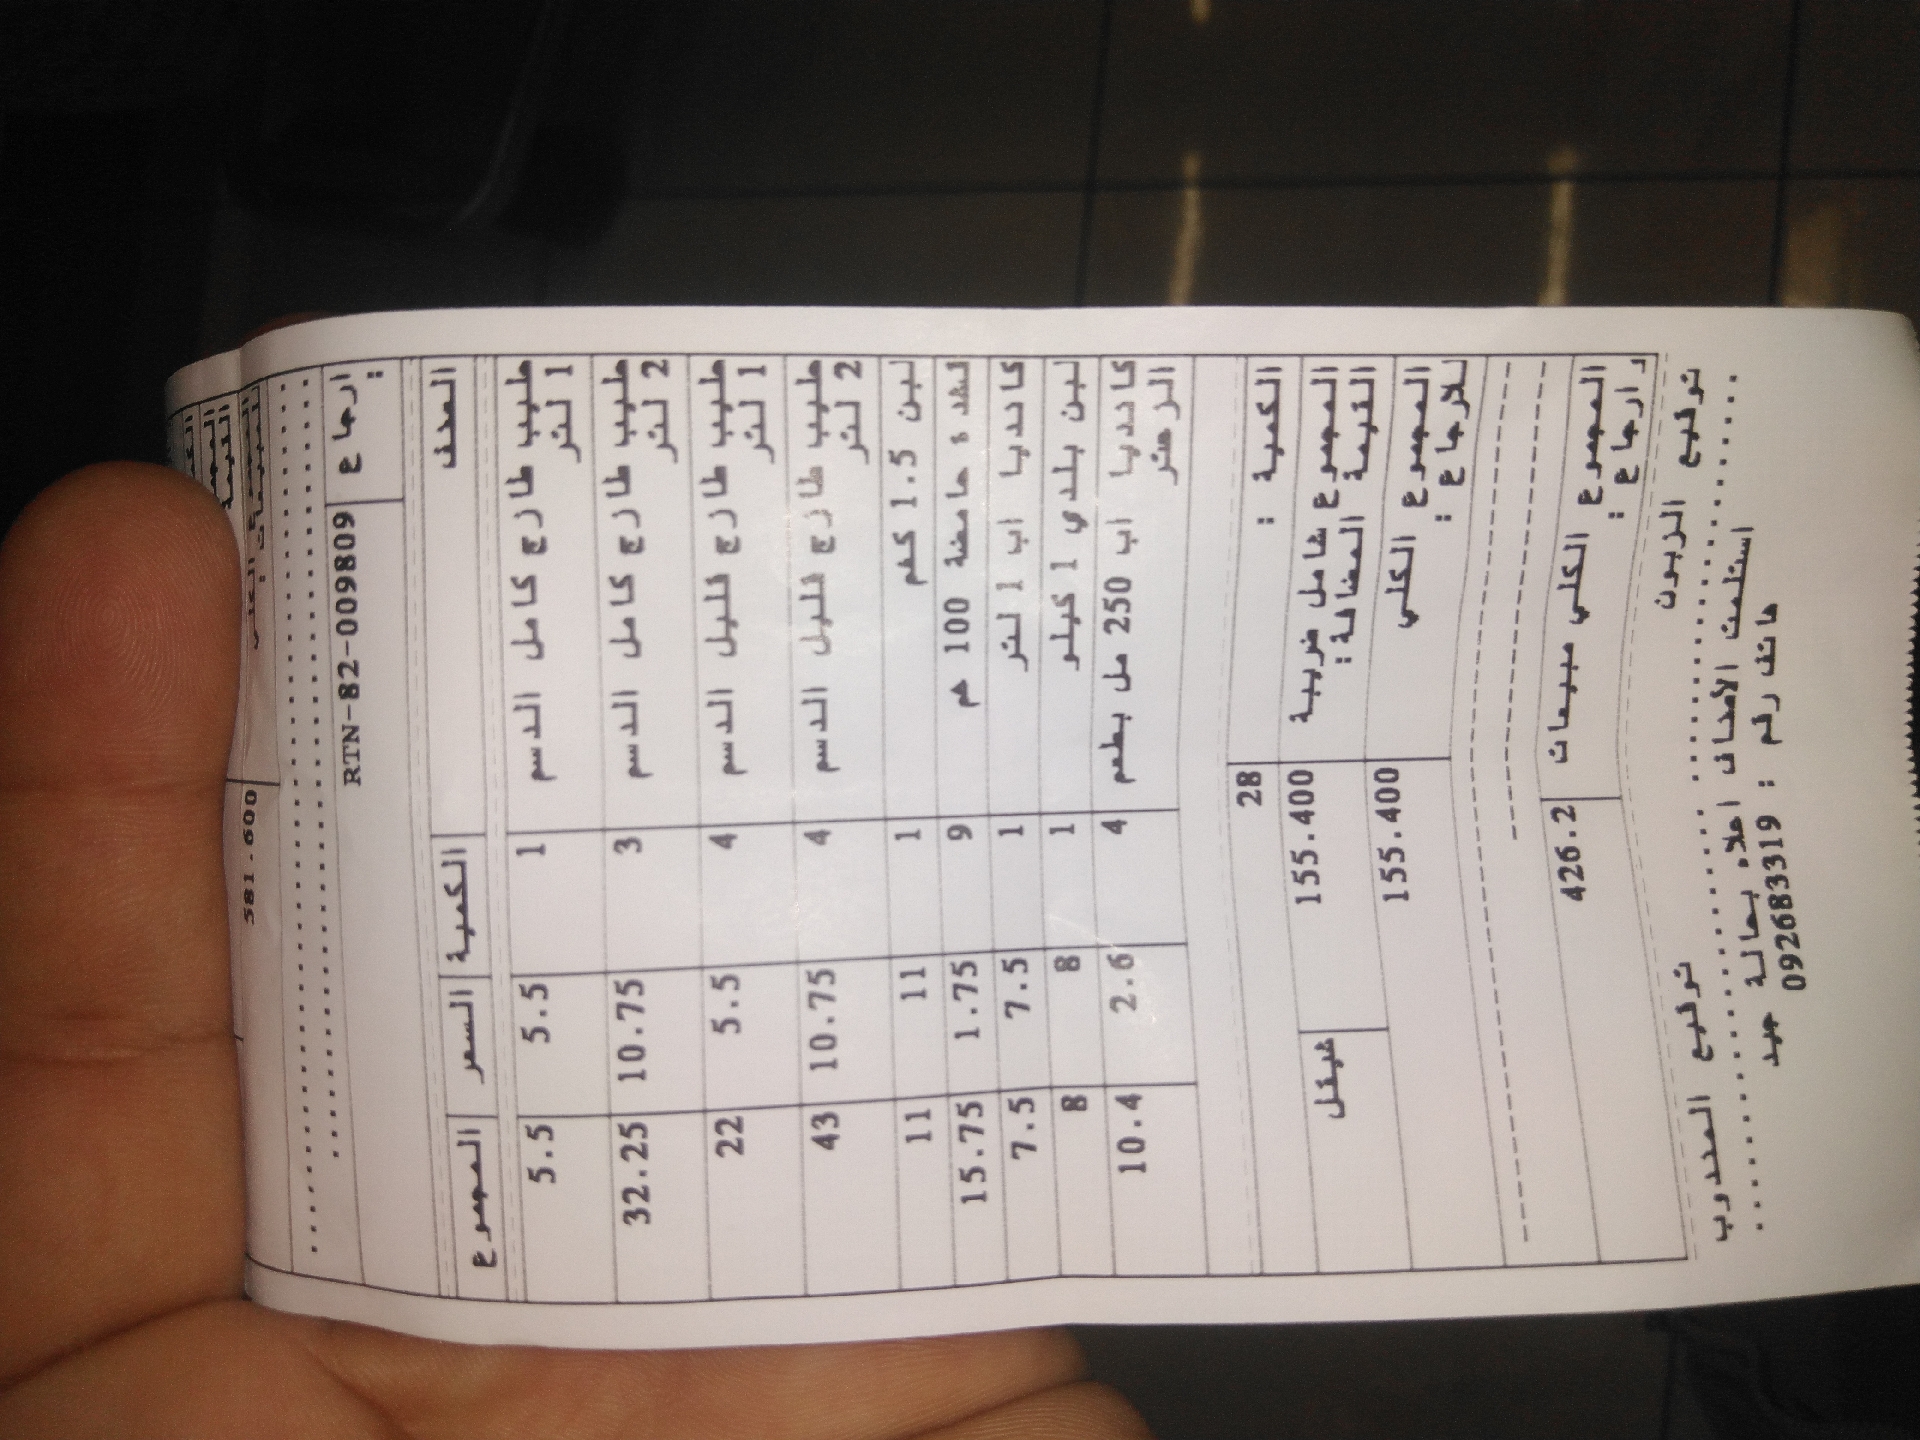 581.600
ارجاع : RTN-82-009809
الصنف الكمية السعر المجموع
حليب طازج كامل الدسم 1 5.5 5.5
1 لتر
حليب طازج كامل الدسم 3 10.75 32.25
2 لتر
حليب طازج قليل الدسم 4 5.5 22
1 لتر
حليب طازج قليل الدسم 4 10.75 43
2 لتر
لبن 1.5 كغم 1 11 11
قشدة حامضة 100 غم 9 1.75 15.75
كاندیا اب 1 لتر 1 7.5 7.5
لبن بلدي 1 كيلو 1 8 8
كاندیا اب 250 مل بطعم 4 2.6 10.4
الكمية : 28
المجموع شامل ضريبة 155.400 شيقل
القيمة المضافة :
المجموع الكلي 155.400
للارجاع :
المجموع الكلي مبيعات 426.2
و ارجاع :
توقيع الزبون توقيع المندوب
استلمت الأصناف أعلاه بحالة جيد
هاتف رقم : 092683319